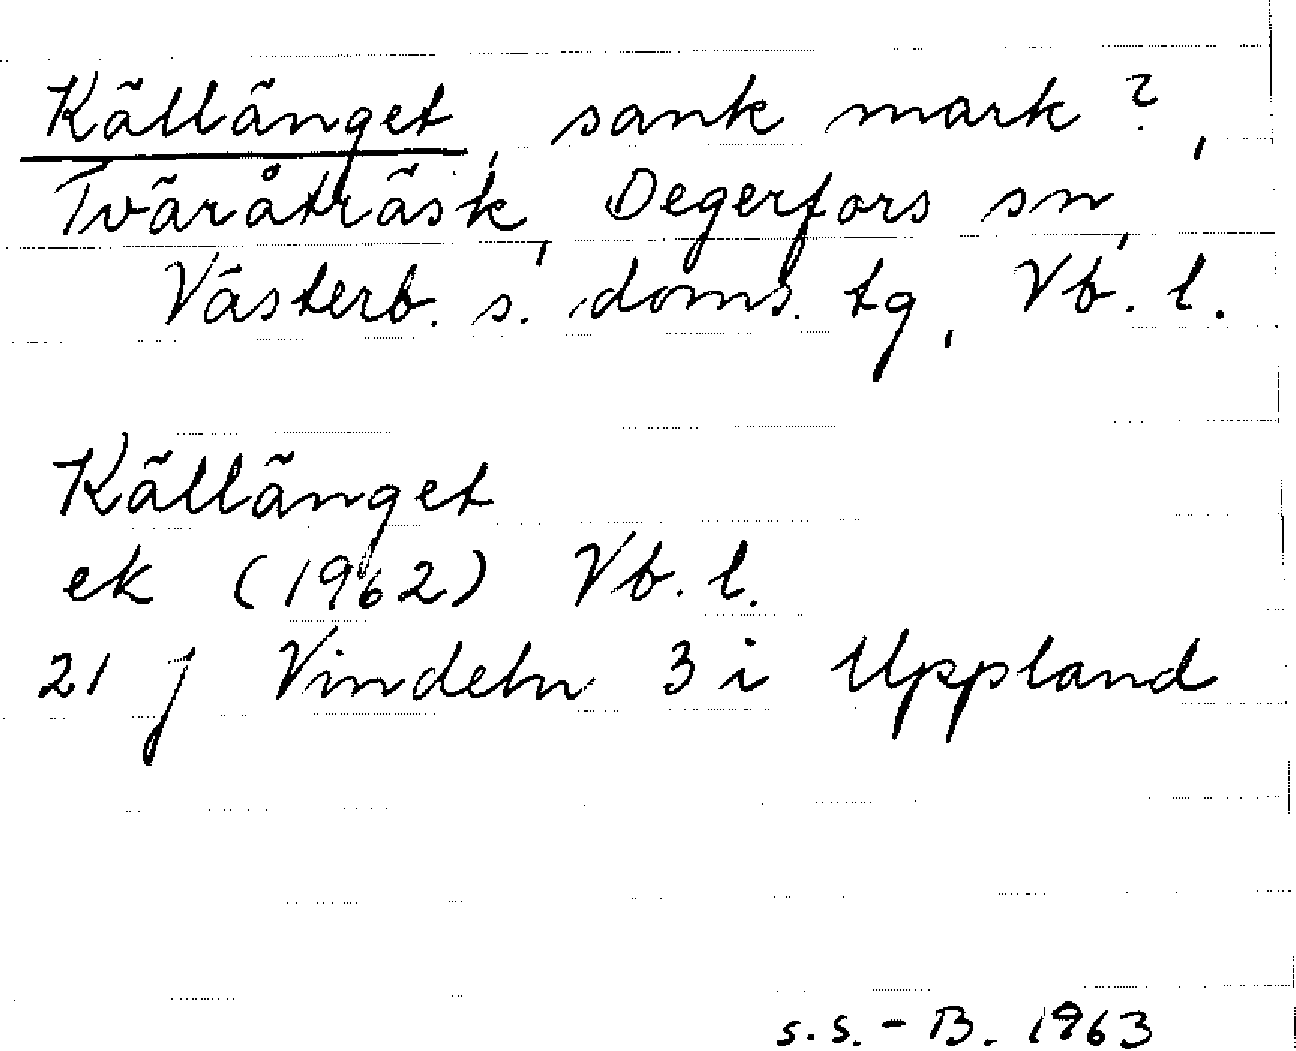 Källänget, sank mark?,
Tväråträsk, Degerfors sn,
Västerb. s. doms. tg, Vb. l.
Källänget
ek (1962) Vb. l.
21 J Vindeln 3 i Uppland
s.s. - B. 1963